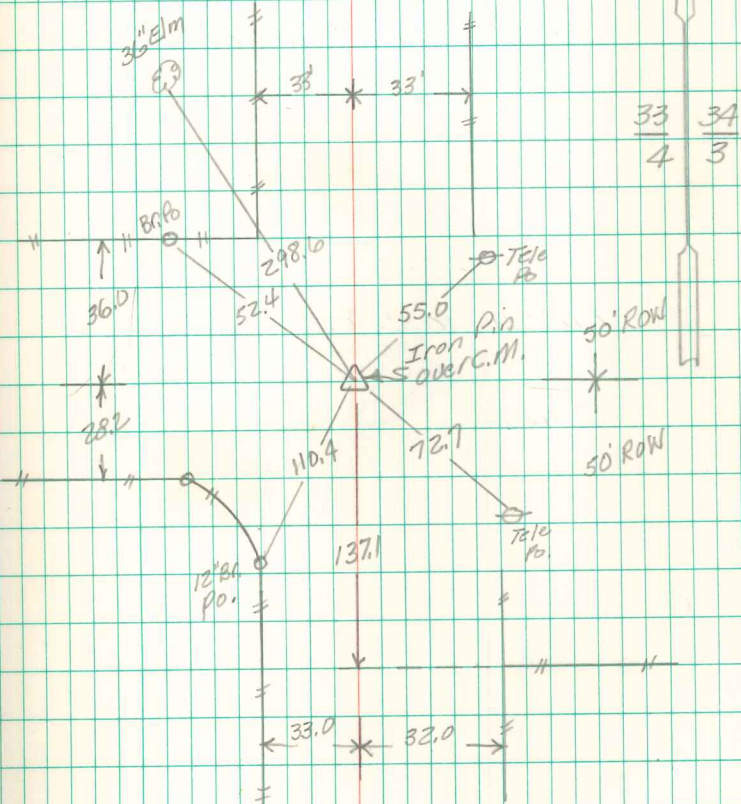 36" Elm
33'
33'
33
4
34
3
Br. Po
298.6
Tele
Po
36.0
52.4
55.0
Iron Pin
over C.M.
50' ROW
28.2
110.4
72.7
50' ROW
137.1
Tele
Po.
12" Br.
Po.
33.0
32.0